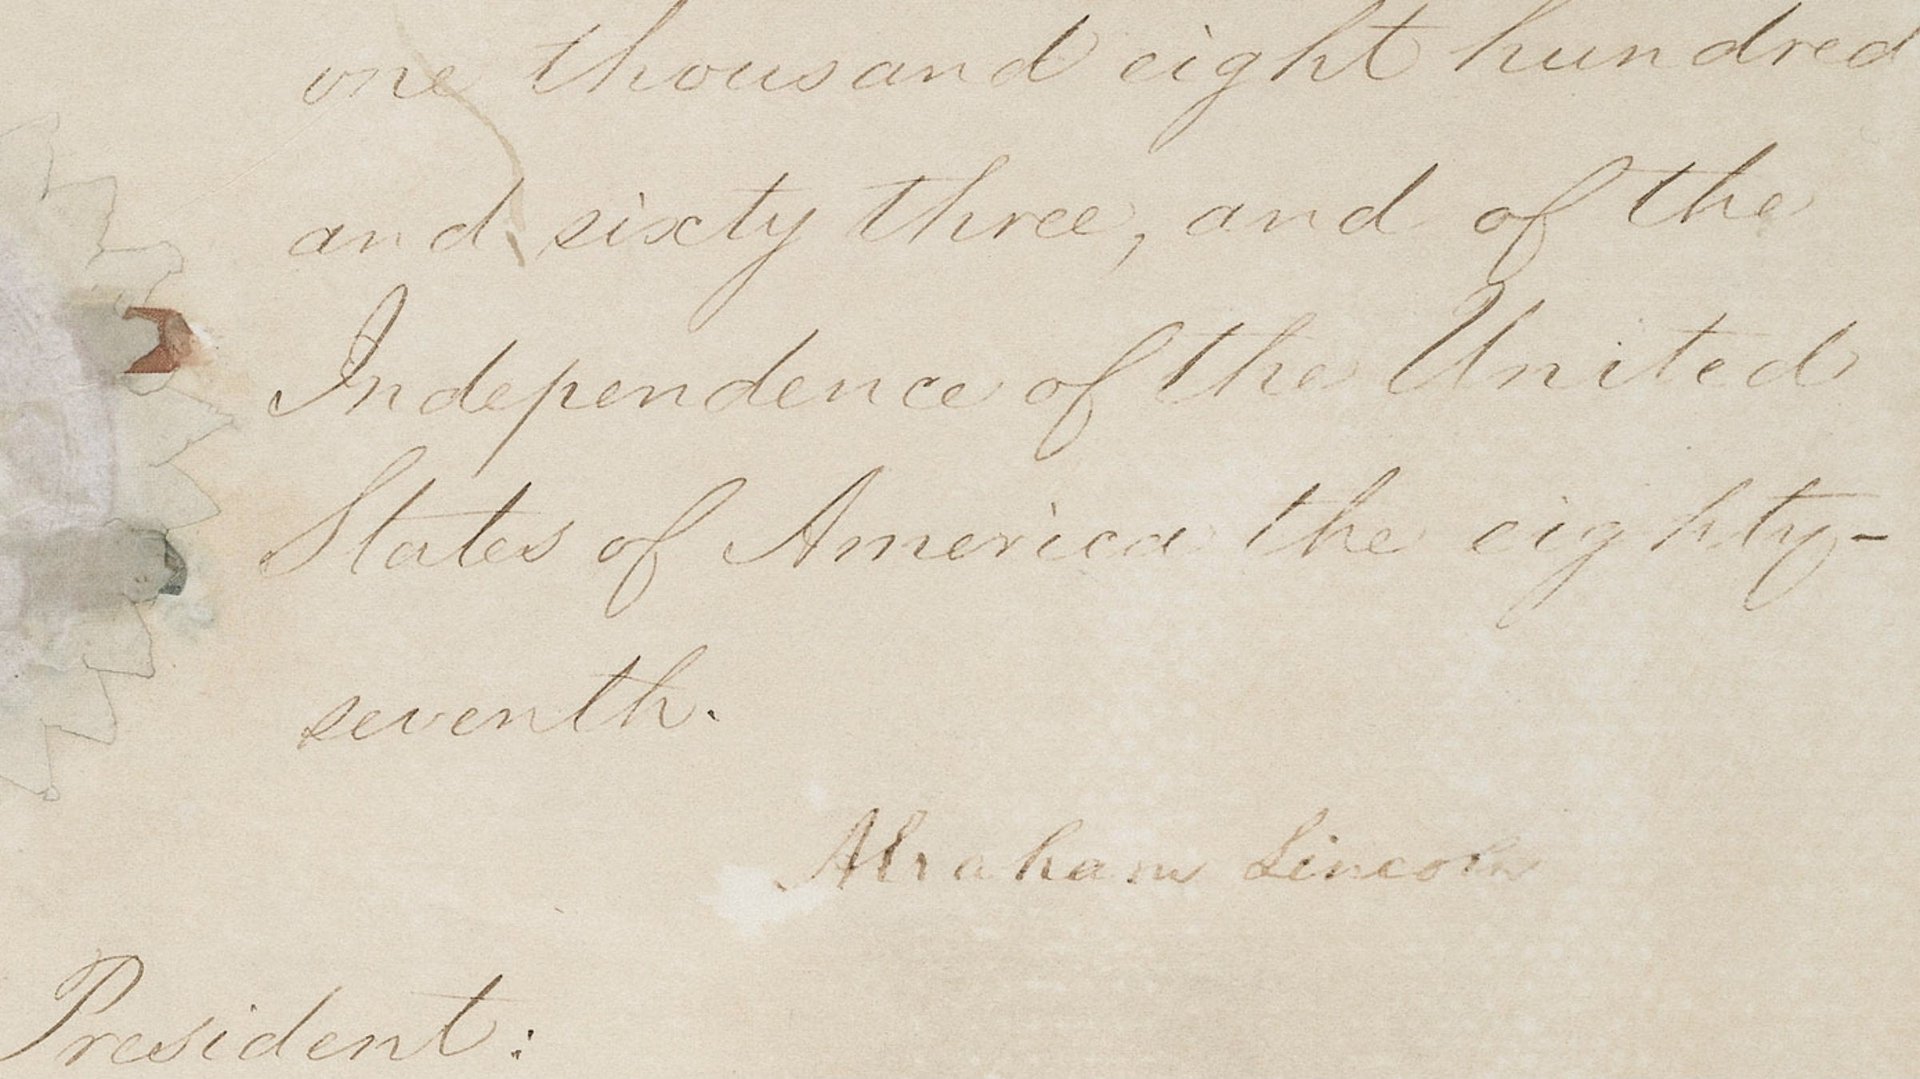 one thousand eight hundred
and sixty three, and of the
Independence of the United
States of America the eighty-
seventh.
Abraham Lincoln
President: